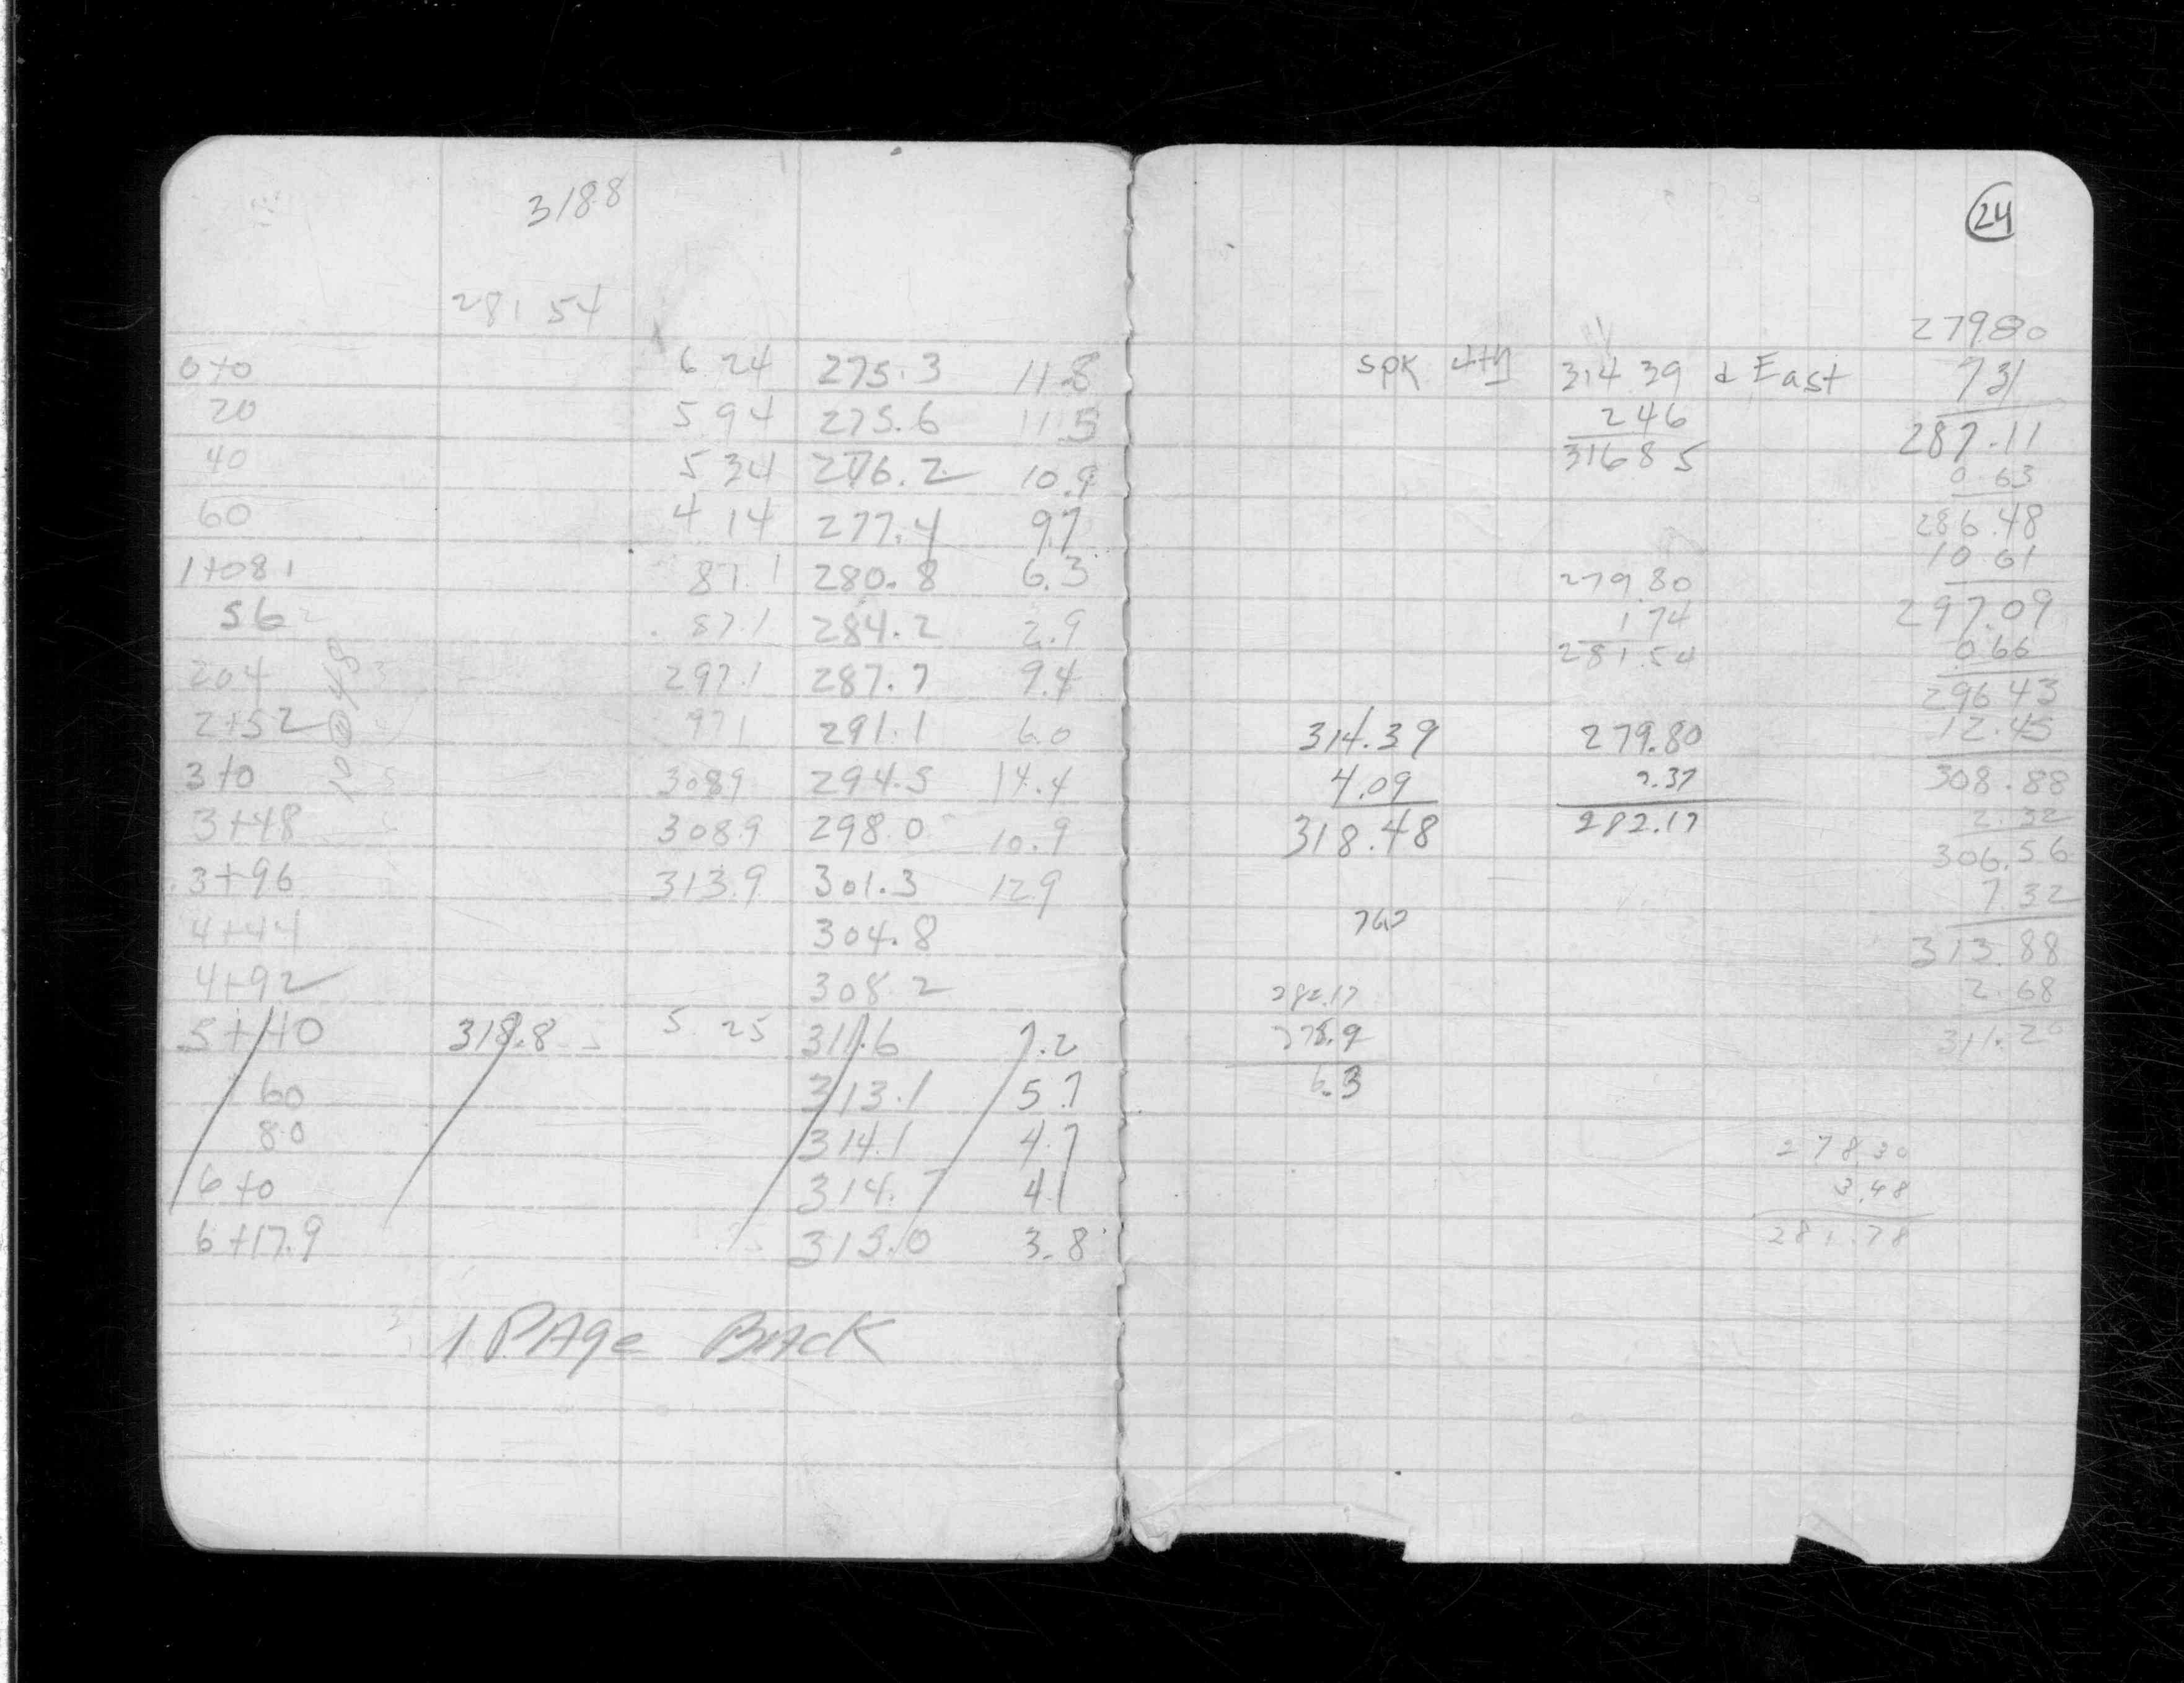 3188
281 54
0+0 6 24 275.3 11.8
20 5 94 275.6 11 5
40 5 34 276.2 10.9
60 4 14 277.4 9.7
1+081 87.1 280.8 6.3
56 87.1 284.2 2.9
204 297.1 287.7 9.4
2+52 971 291.1 6.0
3+0 3089 294.5 14.4
3+48 308.9 298.0 10.9
3+96 313.9 301.3 12.9
4+44 304.8
4+92 308.2
5+40 318.8 5.25 311.6 7.2
60 313.1 5.7
80 314.1 4.7
6+0 314.7 4.1
6+17.9 315.0 3.8
1 PAge BACK
24
spk 314 39 East
2 46
316 8 5
279 80
1 74
281.54
314.39
4.09
318.48
279.80
2.37
282.17
282.17
275.9
6.3
279.80
7 31
287.11
0.63
286.48
10 61
297.09
0.66
296 43
12.45
308.88
2.32
306.56
7.32
313.88
2.68
311.20
278.30
3.48
281.78